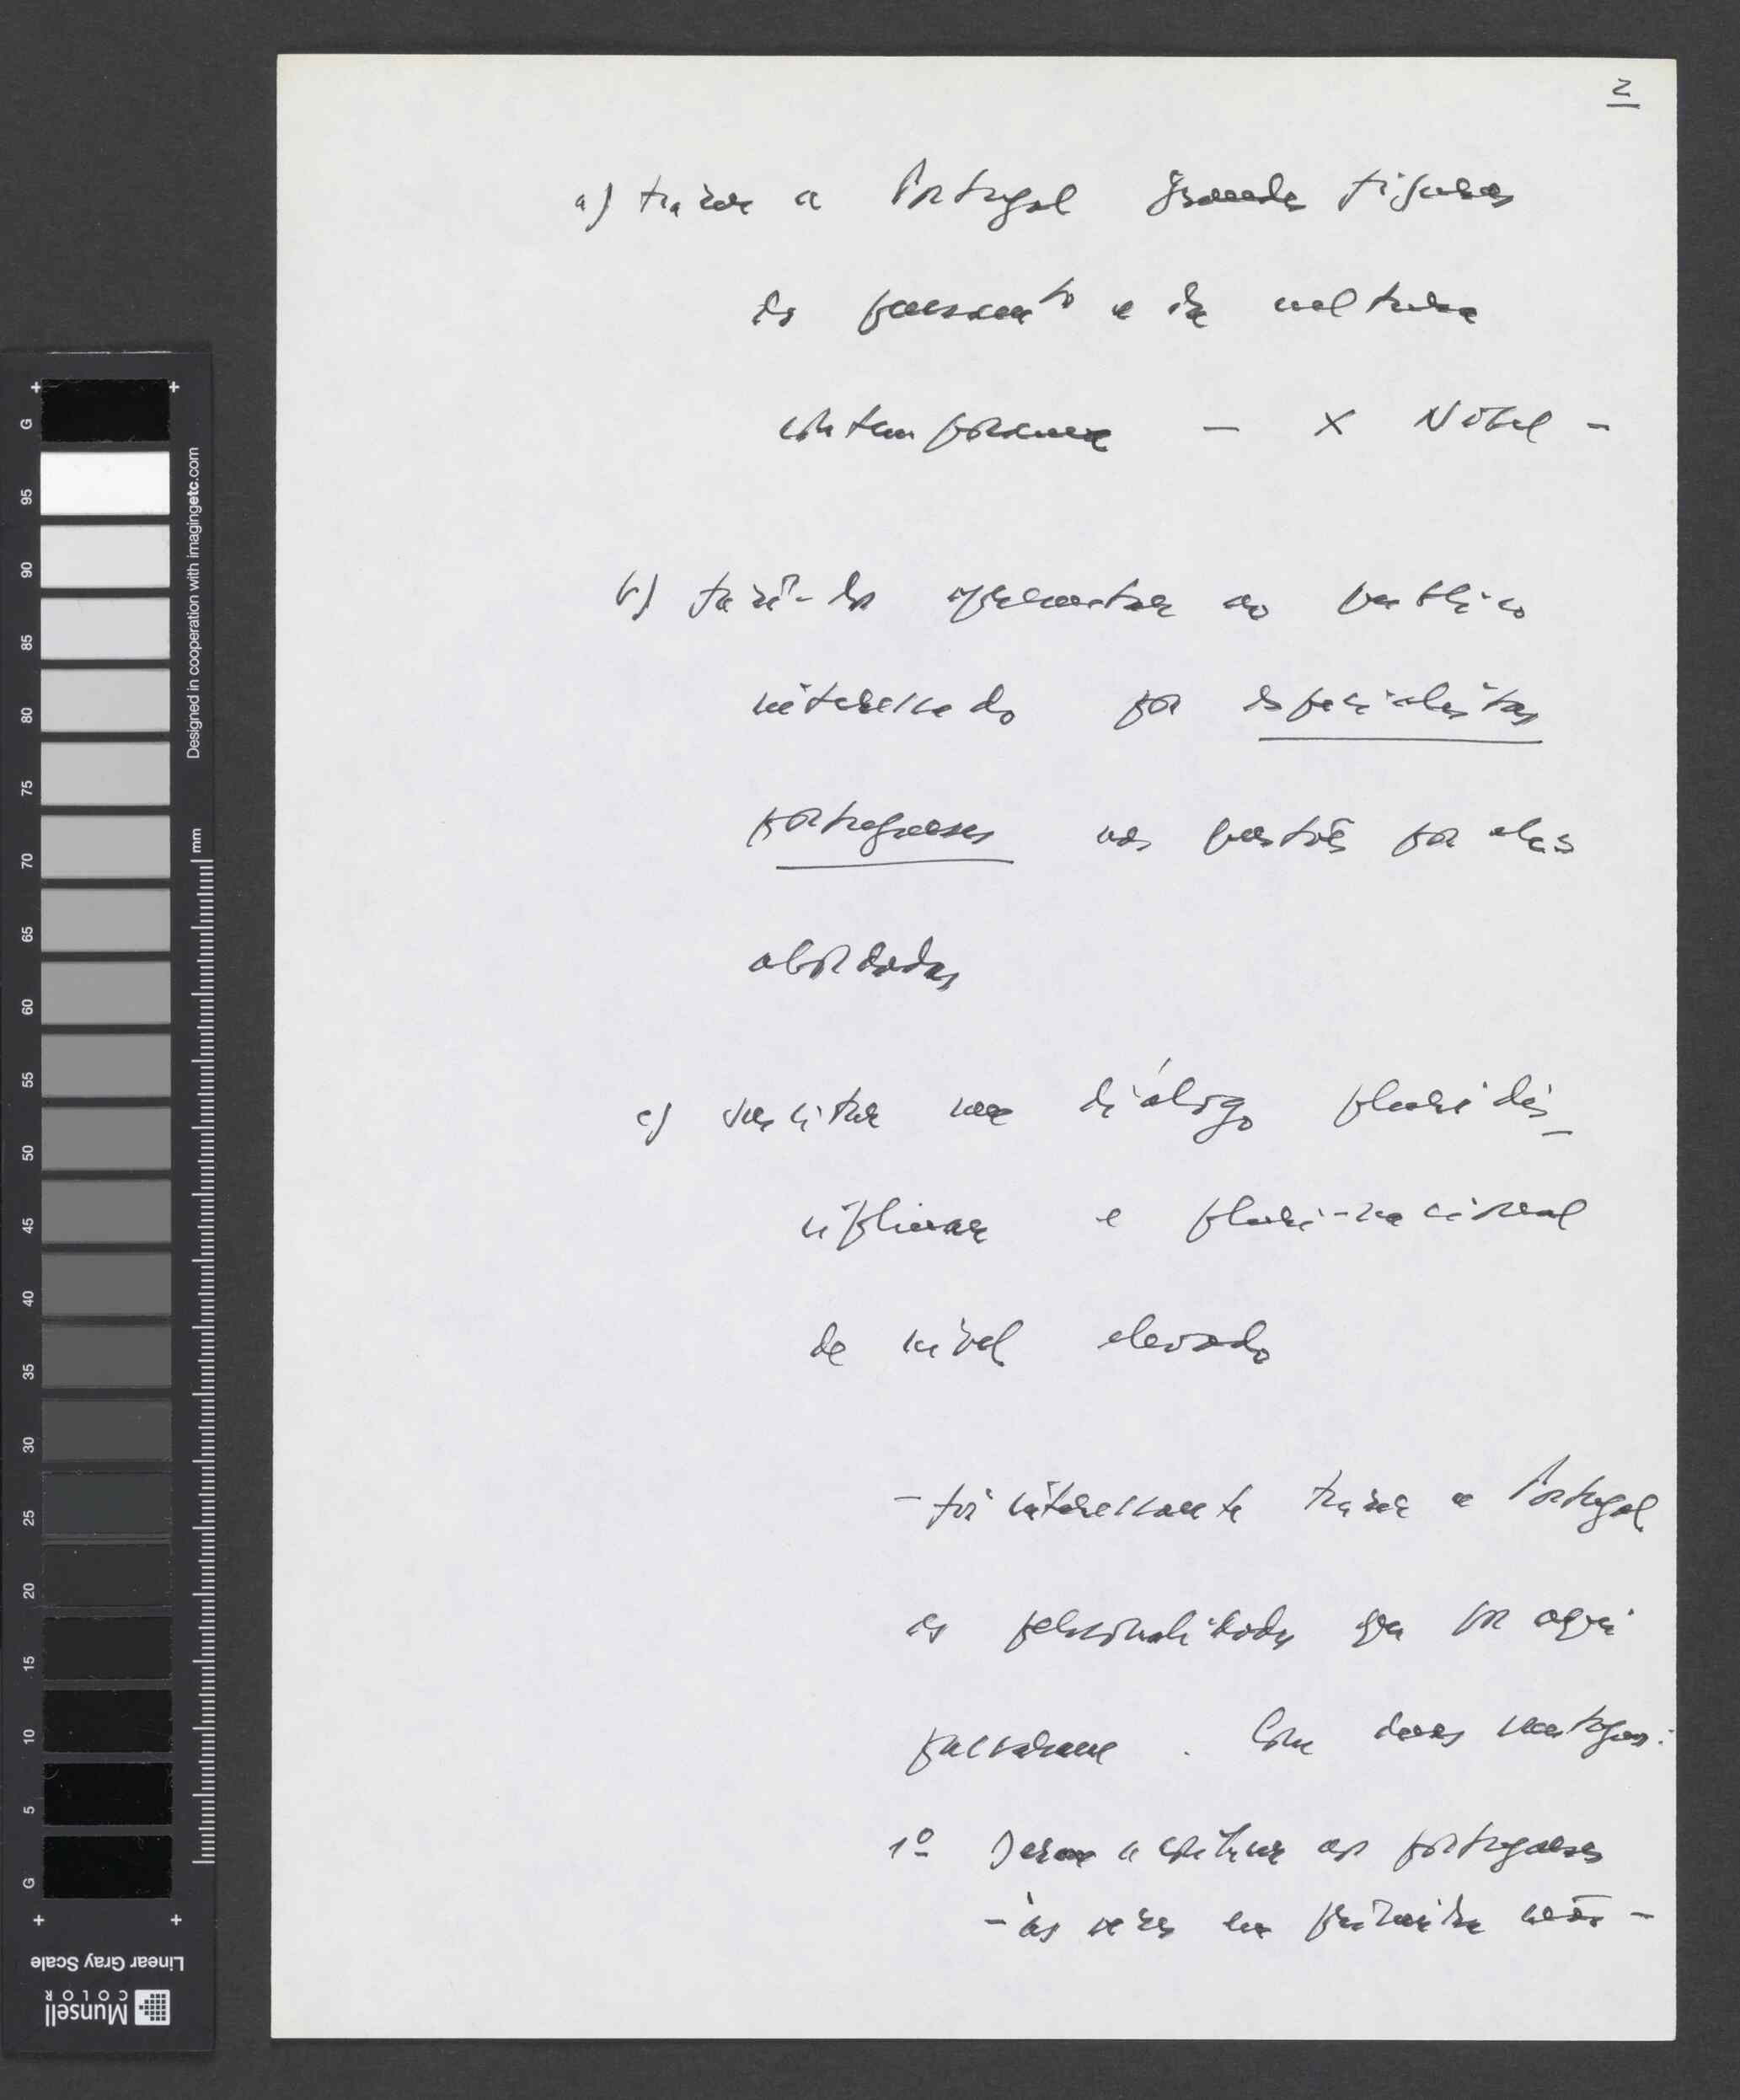 2
a) trazer a Portugal grandes figuras
do pensamto e da cultura
contemporanea — X Nobel -
b) fazê-los apresentar ao publico
interessado por especialistas
portugueses nas questões por eles
abordadas
c) suscitar um diálogo pluridis_
ciplinar e pluri-nacional
de nivel elevado
- foi interessante trazer a Portugal
as personalidades que por aqui
passaram . Com duas vantagens:
1º Deram a conhecer aos portugueses
- às vezes em primeira mão -
G
95
90
85
80
75
70
65
60
55
50
45
40
35
30
25
20
15
10
5
G
Designed in cooperation with imagingetc.com
mm
Linear Gray Scale
Munsell
COLOR